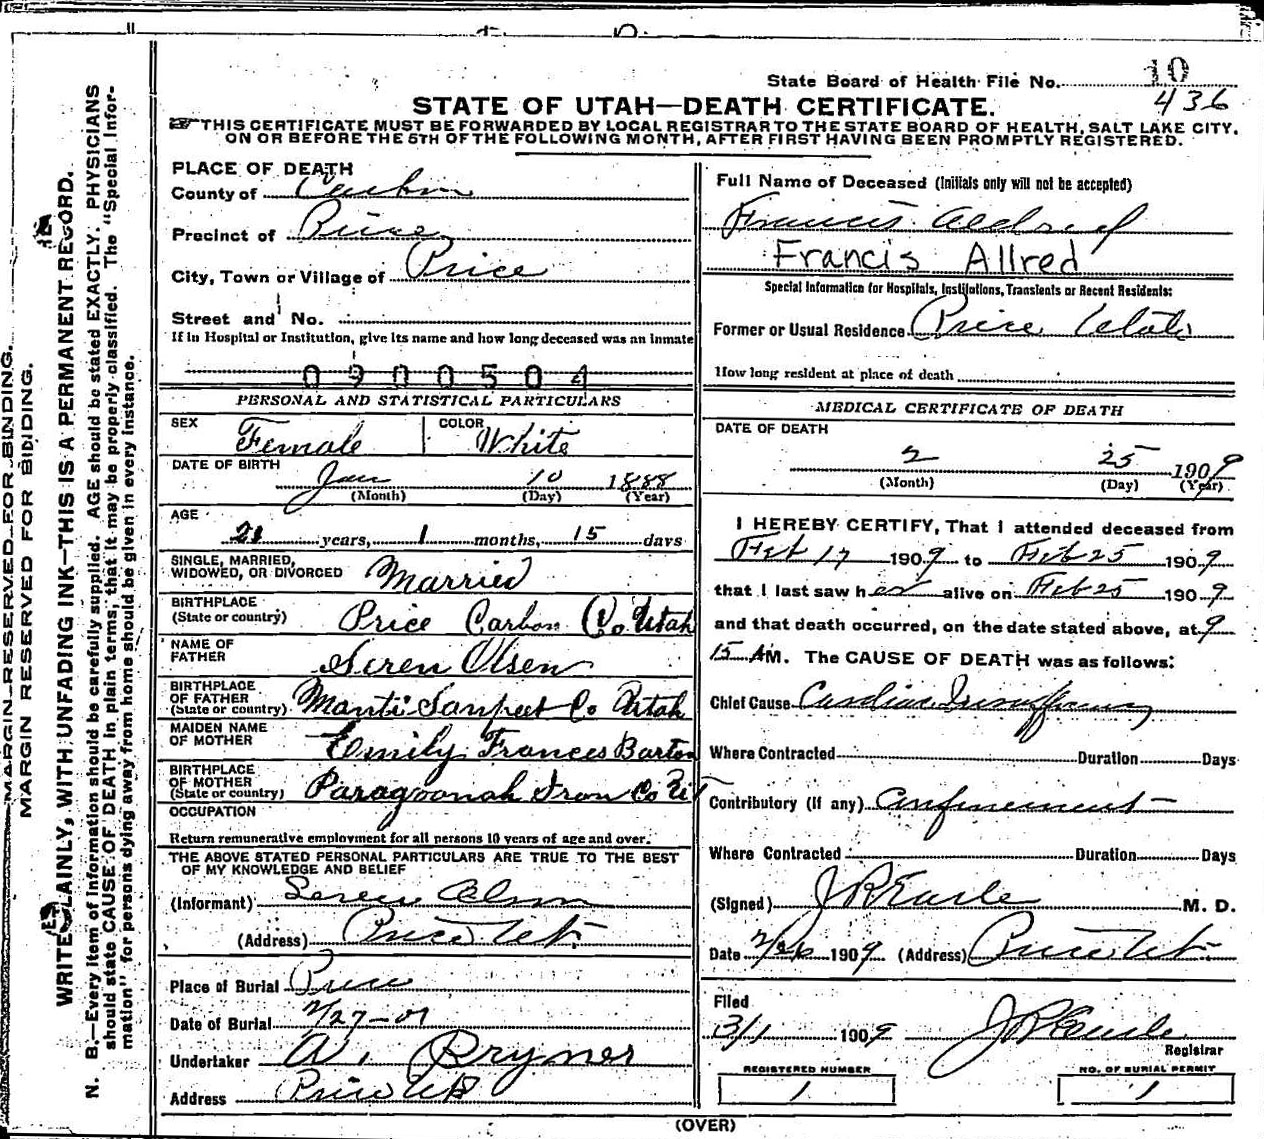 State Board of Health File No. 10
436
STATE OF UTAH—DEATH CERTIFICATE.
THIS CERTIFICATE MUST BE FORWARDED BY LOCAL REGISTRAR TO THE STATE BOARD OF HEALTH, SALT LAKE CITY,
ON OR BEFORE THE 5TH OF THE FOLLOWING MONTH, AFTER FIRST HAVING BEEN PROMPTLY REGISTERED.
MARGIN RESERVED FOR BINDING.
MARGIN RESERVED FOR BIDIDING.
WRITE PLAINLY, WITH UNFADING INK—THIS IS A PERMANENT RECORD.
N. B.—Every item of information should be carefully supplied. AGE should be stated EXACTLY. PHYSICIANS
should state CAUSE OF DEATH in plain terms, that it may be properly classified. The "Special Infor-
mation" for persons dying away from home should be given in every instance.
PLACE OF DEATH
County of Carbon
Precinct of Price
City, Town or Village of Price
Street and No.
If in Hospital or Institution, give its name and how long deceased was an inmate
0900504
PERSONAL AND STATISTICAL PARTICULARS
SEX Female COLOR White
DATE OF BIRTH Jan 10 1888
(Month) (Day) (Year)
AGE
21 years, 1 months, 15 days
SINGLE, MARRIED,
WIDOWED, OR DIVORCED Married
BIRTHPLACE
(State or country) Price Carbon Co. Utah
NAME OF
FATHER Seren Olsen
BIRTHPLACE
OF FATHER
(State or country) Manti Sanpeet Co Utah
MAIDEN NAME
OF MOTHER Emily Frances Barton
BIRTHPLACE
OF MOTHER
(State or country) Paragoonah Iron Co Ut
OCCUPATION
Return remunerative employment for all persons 10 years of age and over.
THE ABOVE STATED PERSONAL PARTICULARS ARE TRUE TO THE BEST
OF MY KNOWLEDGE AND BELIEF
(Informant) Seren Olson
(Address) Price Ut
Place of Burial Price
Date of Burial 2/27-09
Undertaker W. Bryner
Address Price Ut
Full Name of Deceased (Initials only will not be accepted)
Francis Aldred
Francis Allred
Special Information for Hospitals, Institutions, Transients or Recent Residents:
Former or Usual Residence Price Utah
How long resident at place of death
MEDICAL CERTIFICATE OF DEATH
DATE OF DEATH
2 25 1909
(Month) (Day) (Year)
I HEREBY CERTIFY, That I attended deceased from
Feb 17 1909 to Feb 25 1909
that I last saw her alive on Feb 25 1909
and that death occurred, on the date stated above, at 9
15 AM. The CAUSE OF DEATH was as follows:
Chief Cause Cardiac Insufficiency
Where Contracted Duration Days
Contributory (if any) Confinement
Where Contracted Duration Days
(Signed) M. D.
Date 2/26 1909 (Address) Price Ut
Filed
3/1 1909
Registrar
REGISTERED NUMBER
1
NO. OF BURIAL PERMIT
1
(OVER)